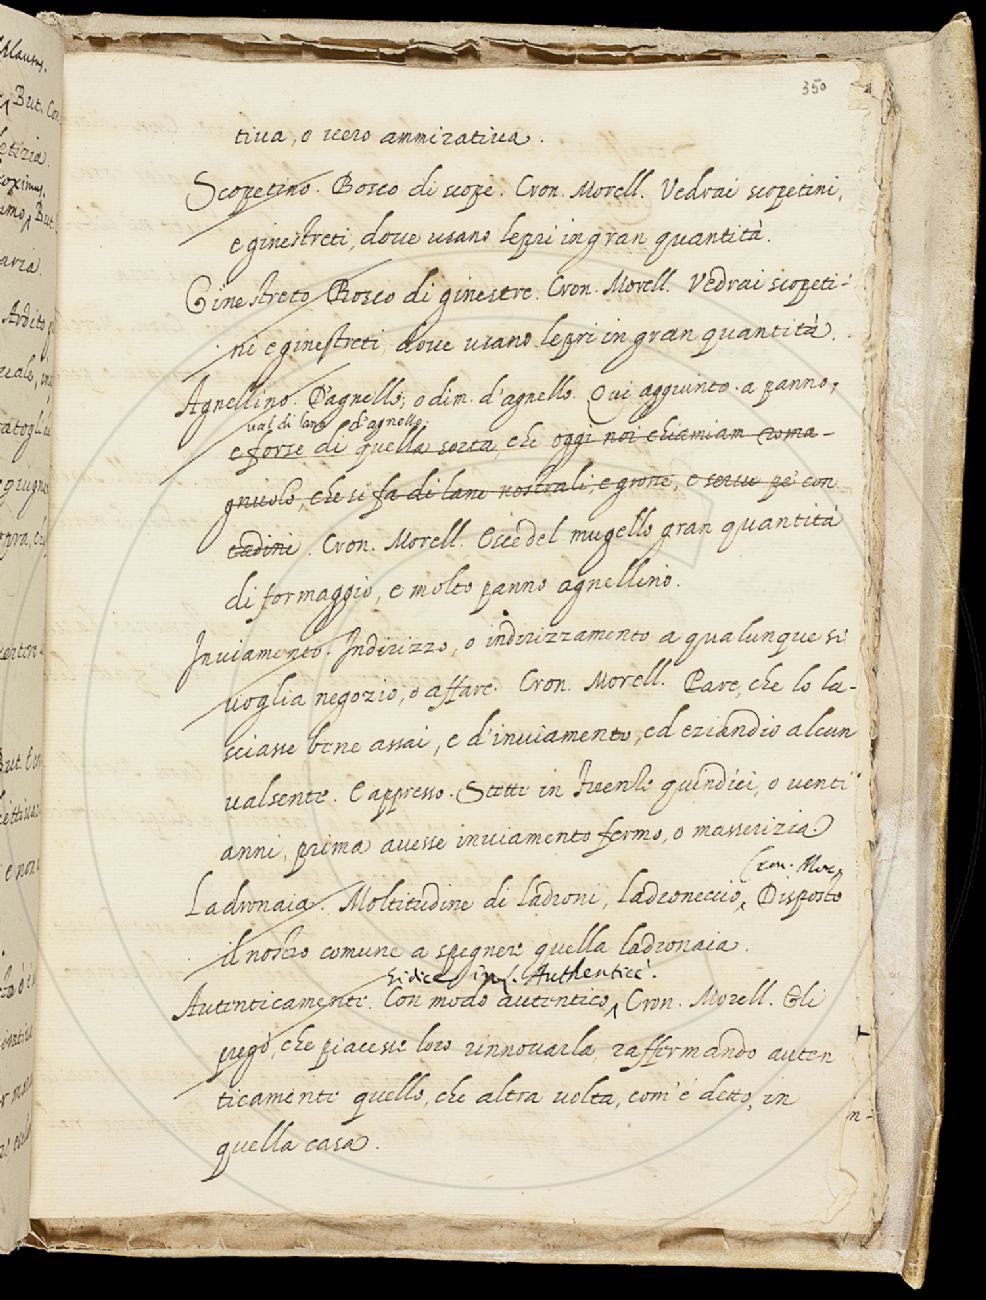 350
tiva, o vero ammirativa.
Scopetino. Bosco di scope. Cron. Morell. Vedrai scopetini,
e ginestreti, dove usano lepri in gran quantità.
Ginestreto. Bosco di ginestre. Cron. Morell. Vedrai scopeti-
ni e ginestreti, dove usano lepri in gran quantità.
Agnellino. D'agnello, o dim. d'agnello. Qui aggiunto a panno,
val di lana d'agnello.
e forse di quella sorta, che oggi noi chiamiam roma-
gnuolo, che si fa di lane nostrali, e grone, e serve pe' con
tadini. Cron. Morell. Escè del mugello gran quantità
di formaggio, e molto panno agnellino.
Inviamento. Indirizzo, o indirizzamento a qualunque si
voglia negozio, o affare. Cron. Morell. Pare, che lo la-
sciasse bene assai, e d'inviamento, ed eziandio alcun
valsente. E appresso. Stette in quindici, o venti
anni, prima avesse inviamento fermo, o masserizia.
Cron. Mor.
Ladronaia. Moltitudine di ladroni, ladroneccio, Disposto
il nostro comune a spegnere quella ladronaia.
Si dice Authenticè.
Autenticamente. Con modo autentico, Cron. Morell. Gli
pregò, che piacesse loro rinnovarla, raffermando auten
ticamente quello, che altra volta, com' è detto, in
quella casa.